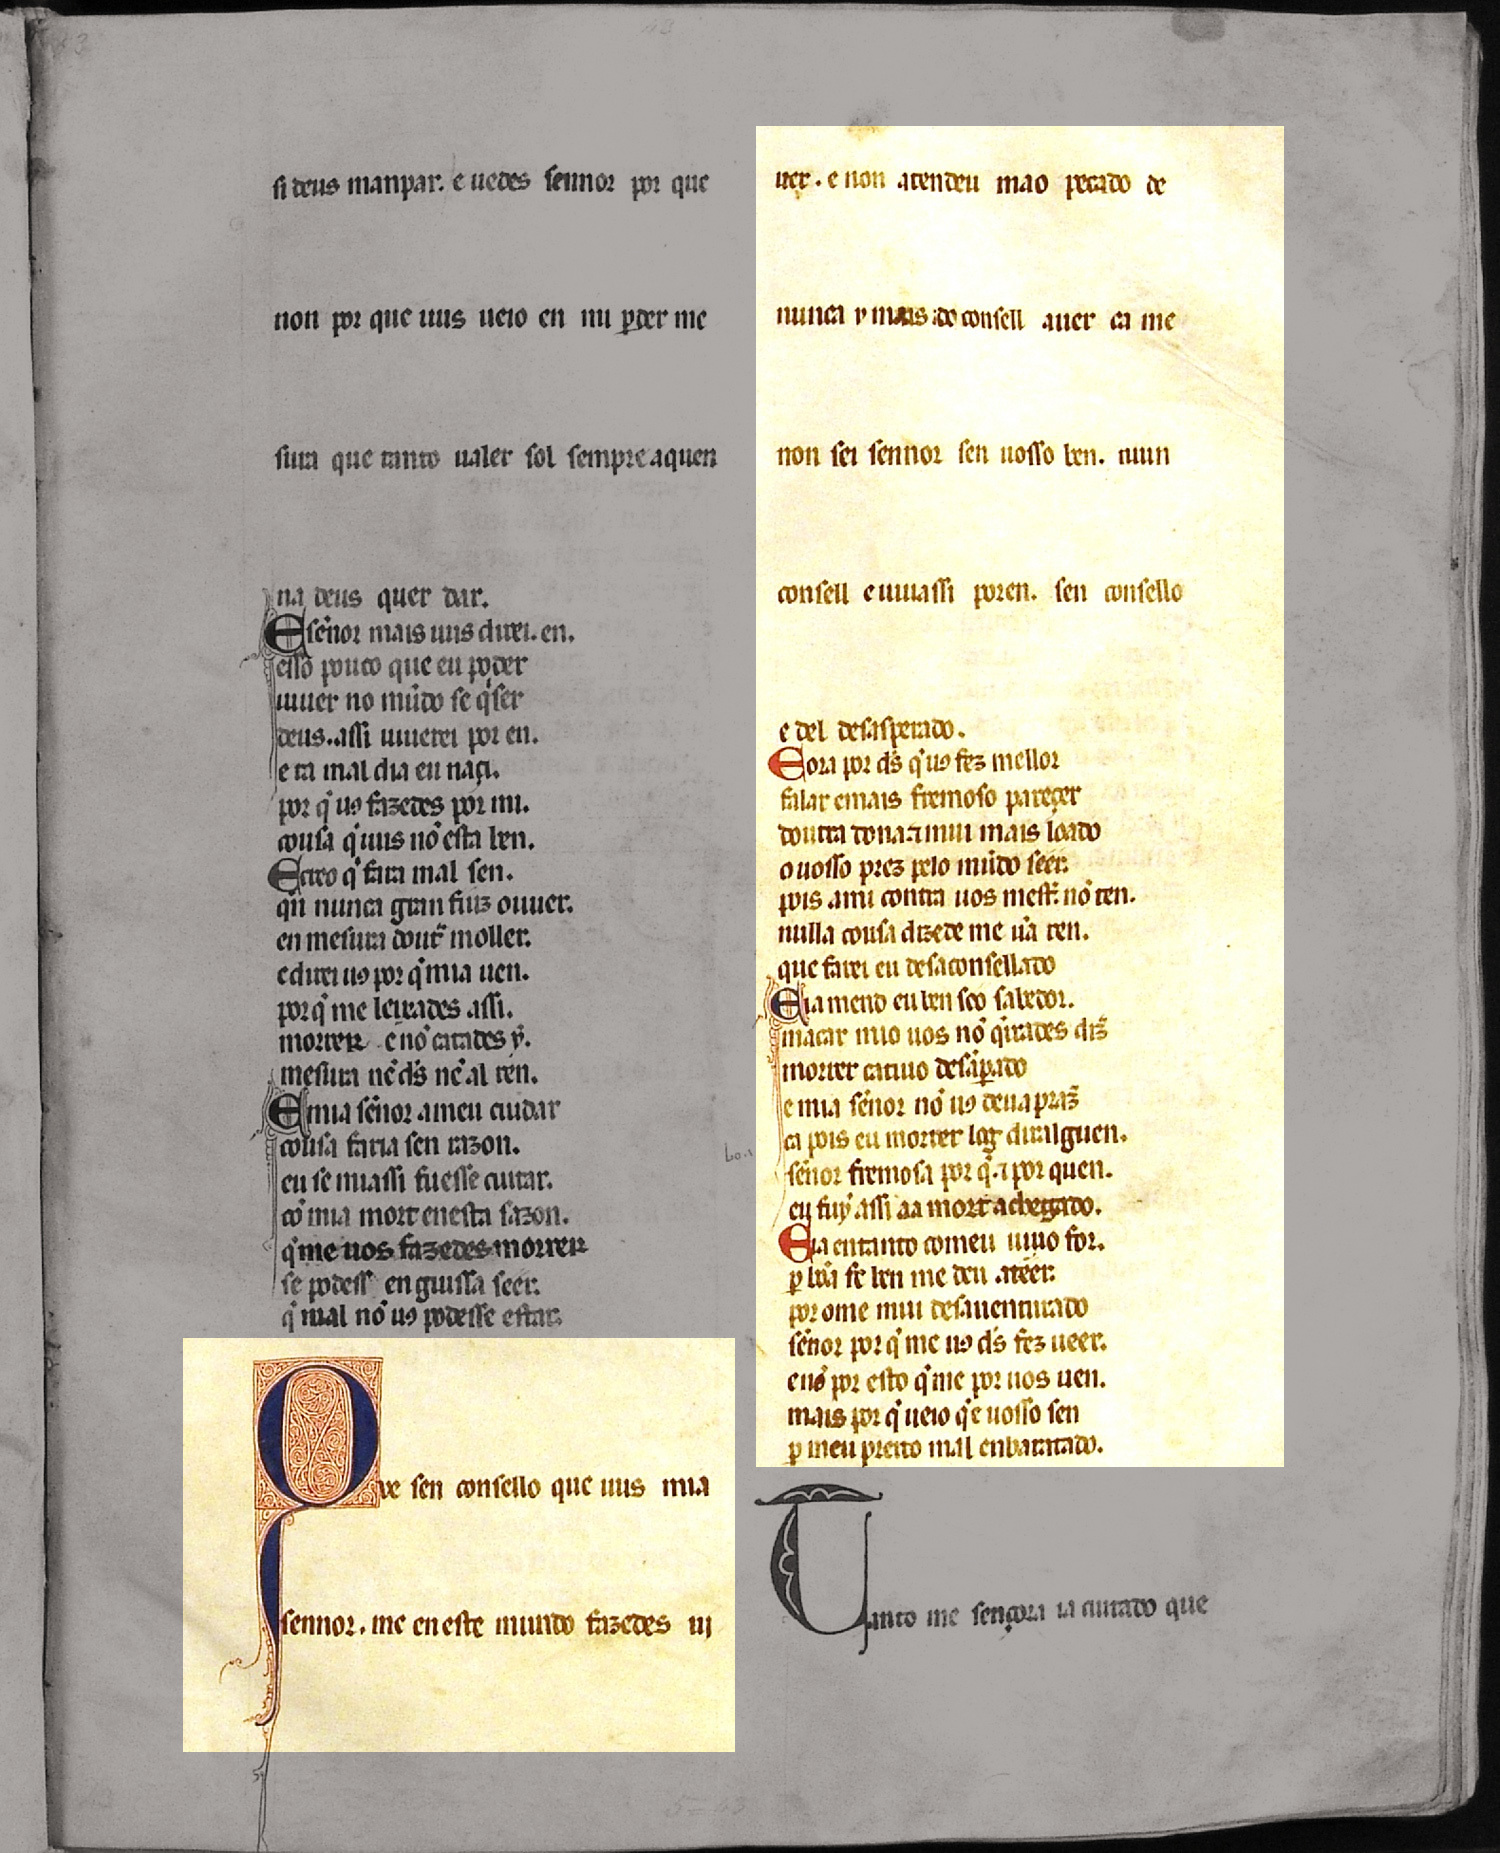 si deus manpar. e uedes sennor por que
non por que uus ueio en mi ꝑder me
sura que tanto ualer sol sempre aquen
na deus quer dar.
E sẽnor mais uus direi. en.
esso pouco que eu poder
uiuer no mũdo se q̇ser
deus. assi uiuerei por en.
e ta mal dia eu naçi.
por q̃ uꝰ fazedes por mi.
cousa q̃ uus nõ esta ben.
E creo q̃ fara mal sen.
quĩ nunca gran fiuz ouuer.
en mesura dout̃ moller.
e direi uꝰ por q̃ mia uen.
por q̃ me leixades assi.
morrer e nõ catades ẏ.
mesura nẽ ds̃ nẽ al ren.
E mia sẽnor a meu cuidar
cousa faria sen razon.
eu se miassi fuesse cuitar.
cõ mia mort enesta sazon.
q̃ me uos fazedes morrer
se podess en guissa seer.
q̃ mal nõ uꝰ podesse estar.
Pois sen consello que uus mia
sennor. me en este mundo fazedes ui
uer. e non atendeu mao pecado de
nunca y mais do consell auer ca me
non sei sennor sen uosso ben. niun
consell e uiuassi poren. sen consello
e del desasperado.
E ora por ds̃ q̃ uꝰ fez mellor
falar e mais fremoso pareçer
doutra dona ⁊ mui mais loado
o uosso prez pelo mũdo seer.
pois a mi contra uos mest̃. nõ ten.
nulla cousa dizede me ũa ren.
que farei eu desaconsellado
E ia mend eu ben soo sabedor.
macar mio uos nõ q̇irades diz̃
morrer catiuo desãꝑado
e mia sẽnor nõ uꝰ deua praz̃
ca pois eu morrer log diralguen.
sẽnor fremosa por q̃. ⁊ por quen.
eu fuy assi aa mort achegado.
E ia entanto comeu uiuo for.
ꝑ bõa fe ben me deu atẽer.
por ome mui desauenturado
sẽnor por q̃ me uꝰ ds̃ fez ueer.
e nõ por esto q̃ me por uos uen.
mais por q̃ ueio q̃ e uosso sen
ꝑ meu preito mal enbaratado.
Tanto me sençora ia cuitado que